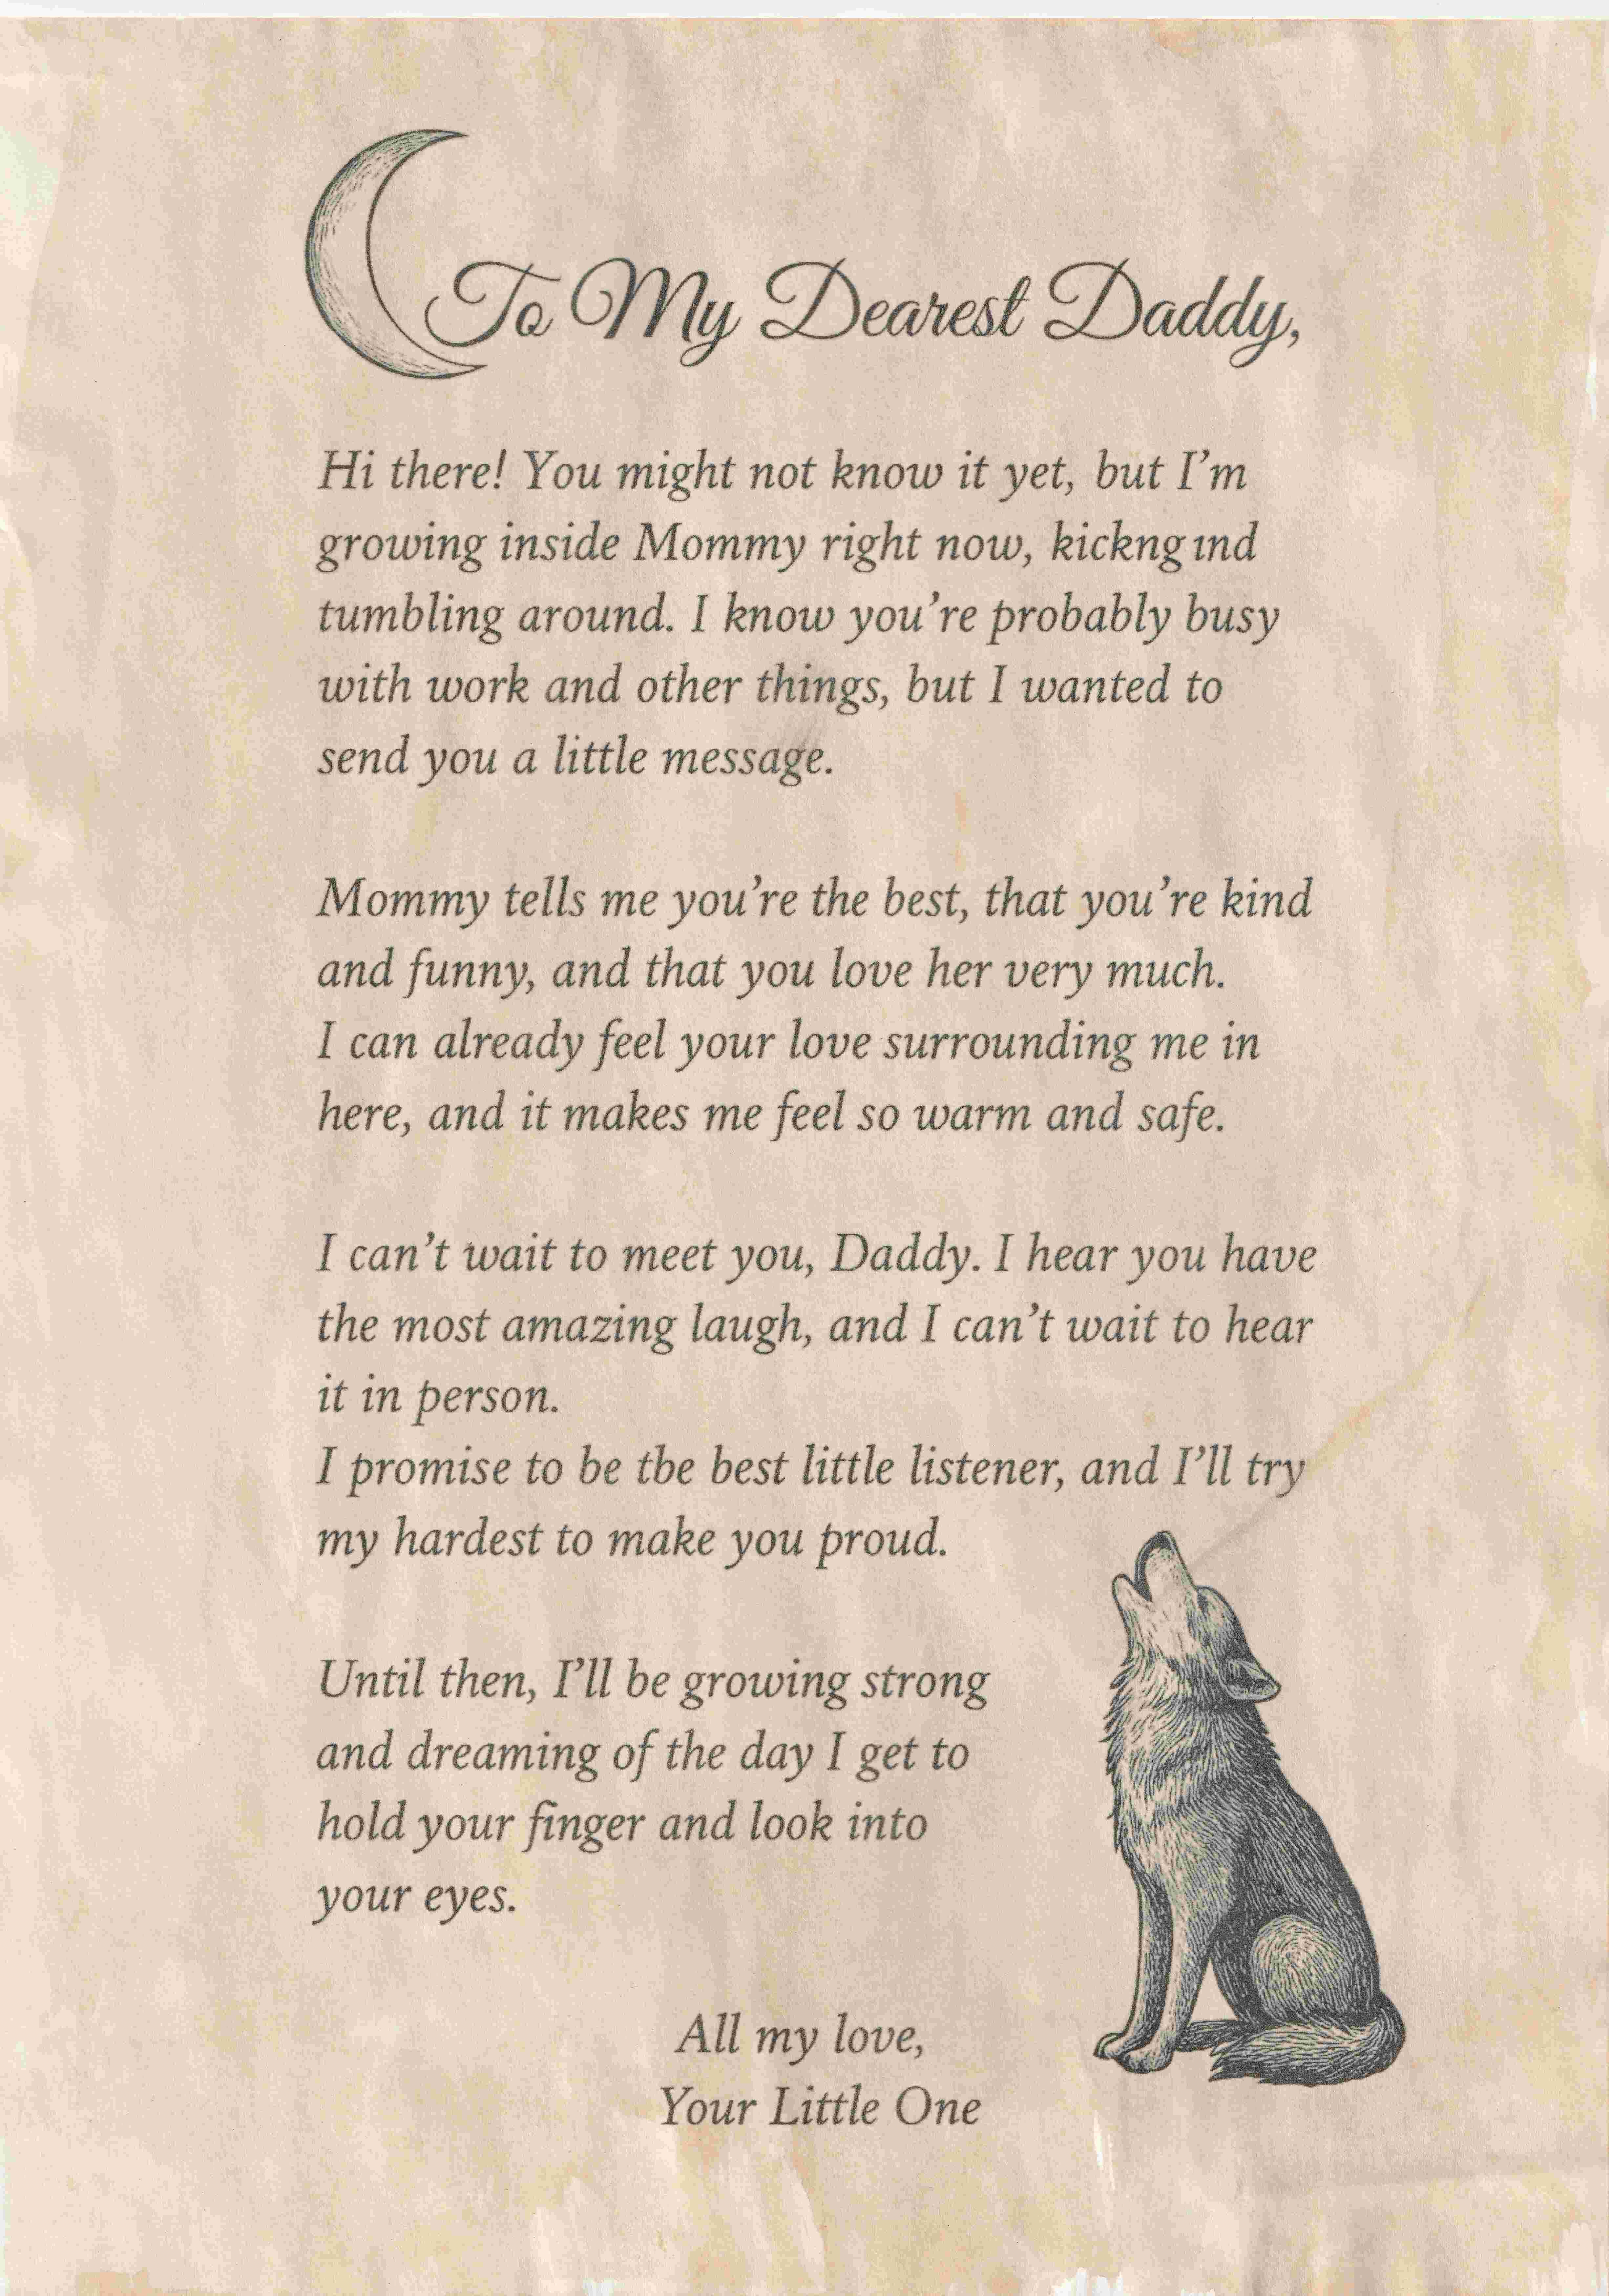 To My Dearest Daddy,
Hi there! You might not know it yet, but I’m
growing inside Mommy right now, kickng ınd
tumbling around. I know you’re probably busy
with work and other things, but I wanted to
send you a little message.
Mommy tells me you’re the best, that you’re kind
and funny, and that you love her very much.
I can already feel your love surrounding me in
here, and it makes me feel so warm and safe.
I can’t wait to meet you, Daddy. I hear you have
the most amazing laugh, and I can’t wait to hear
it in person.
I promise to be tbe best little listener, and I’ll try
my hardest to make you proud.
Until then, I’ll be growing strong
and dreaming of the day I get to
hold your finger and look into
your eyes.
All my love,
Your Little One